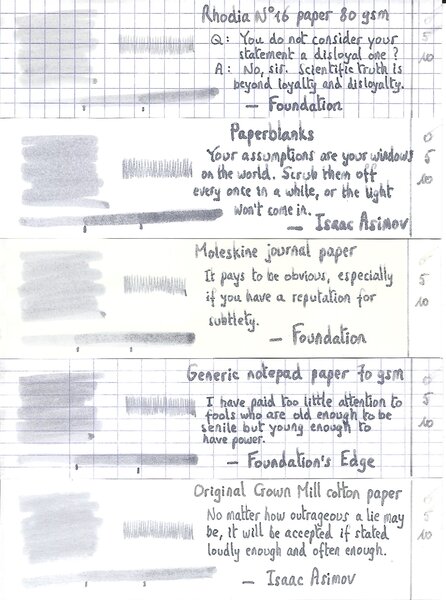 Rhodia N°16 paper 80 gsm
Q: You do not consider your
statement a disloyal one?
A: No, sir. Scientific truth is
beyond loyalty and disloyalty.
— Foundation
0
5
10
Paperblanks
Your assumptions are your windows
on the world. Scrub them off
every once in a while, or the light
won't come in.
— Isaac Asimov
0
5
10
Moleskine journal paper
It pays to be obvious, especially
if you have a reputation for
subtlety.
— Foundation
0
5
10
Generic notepad paper 70 gsm
I have paid too little attention to
fools who are old enough to be
senile but young enough to
have power.
— Foundation's Edge
0
5
10
Original Crown Mill cotton paper
No matter how outrageous a lie may
be, it will be accepted if stated
loudly enough and often enough.
— Isaac Asimov
0
5
10